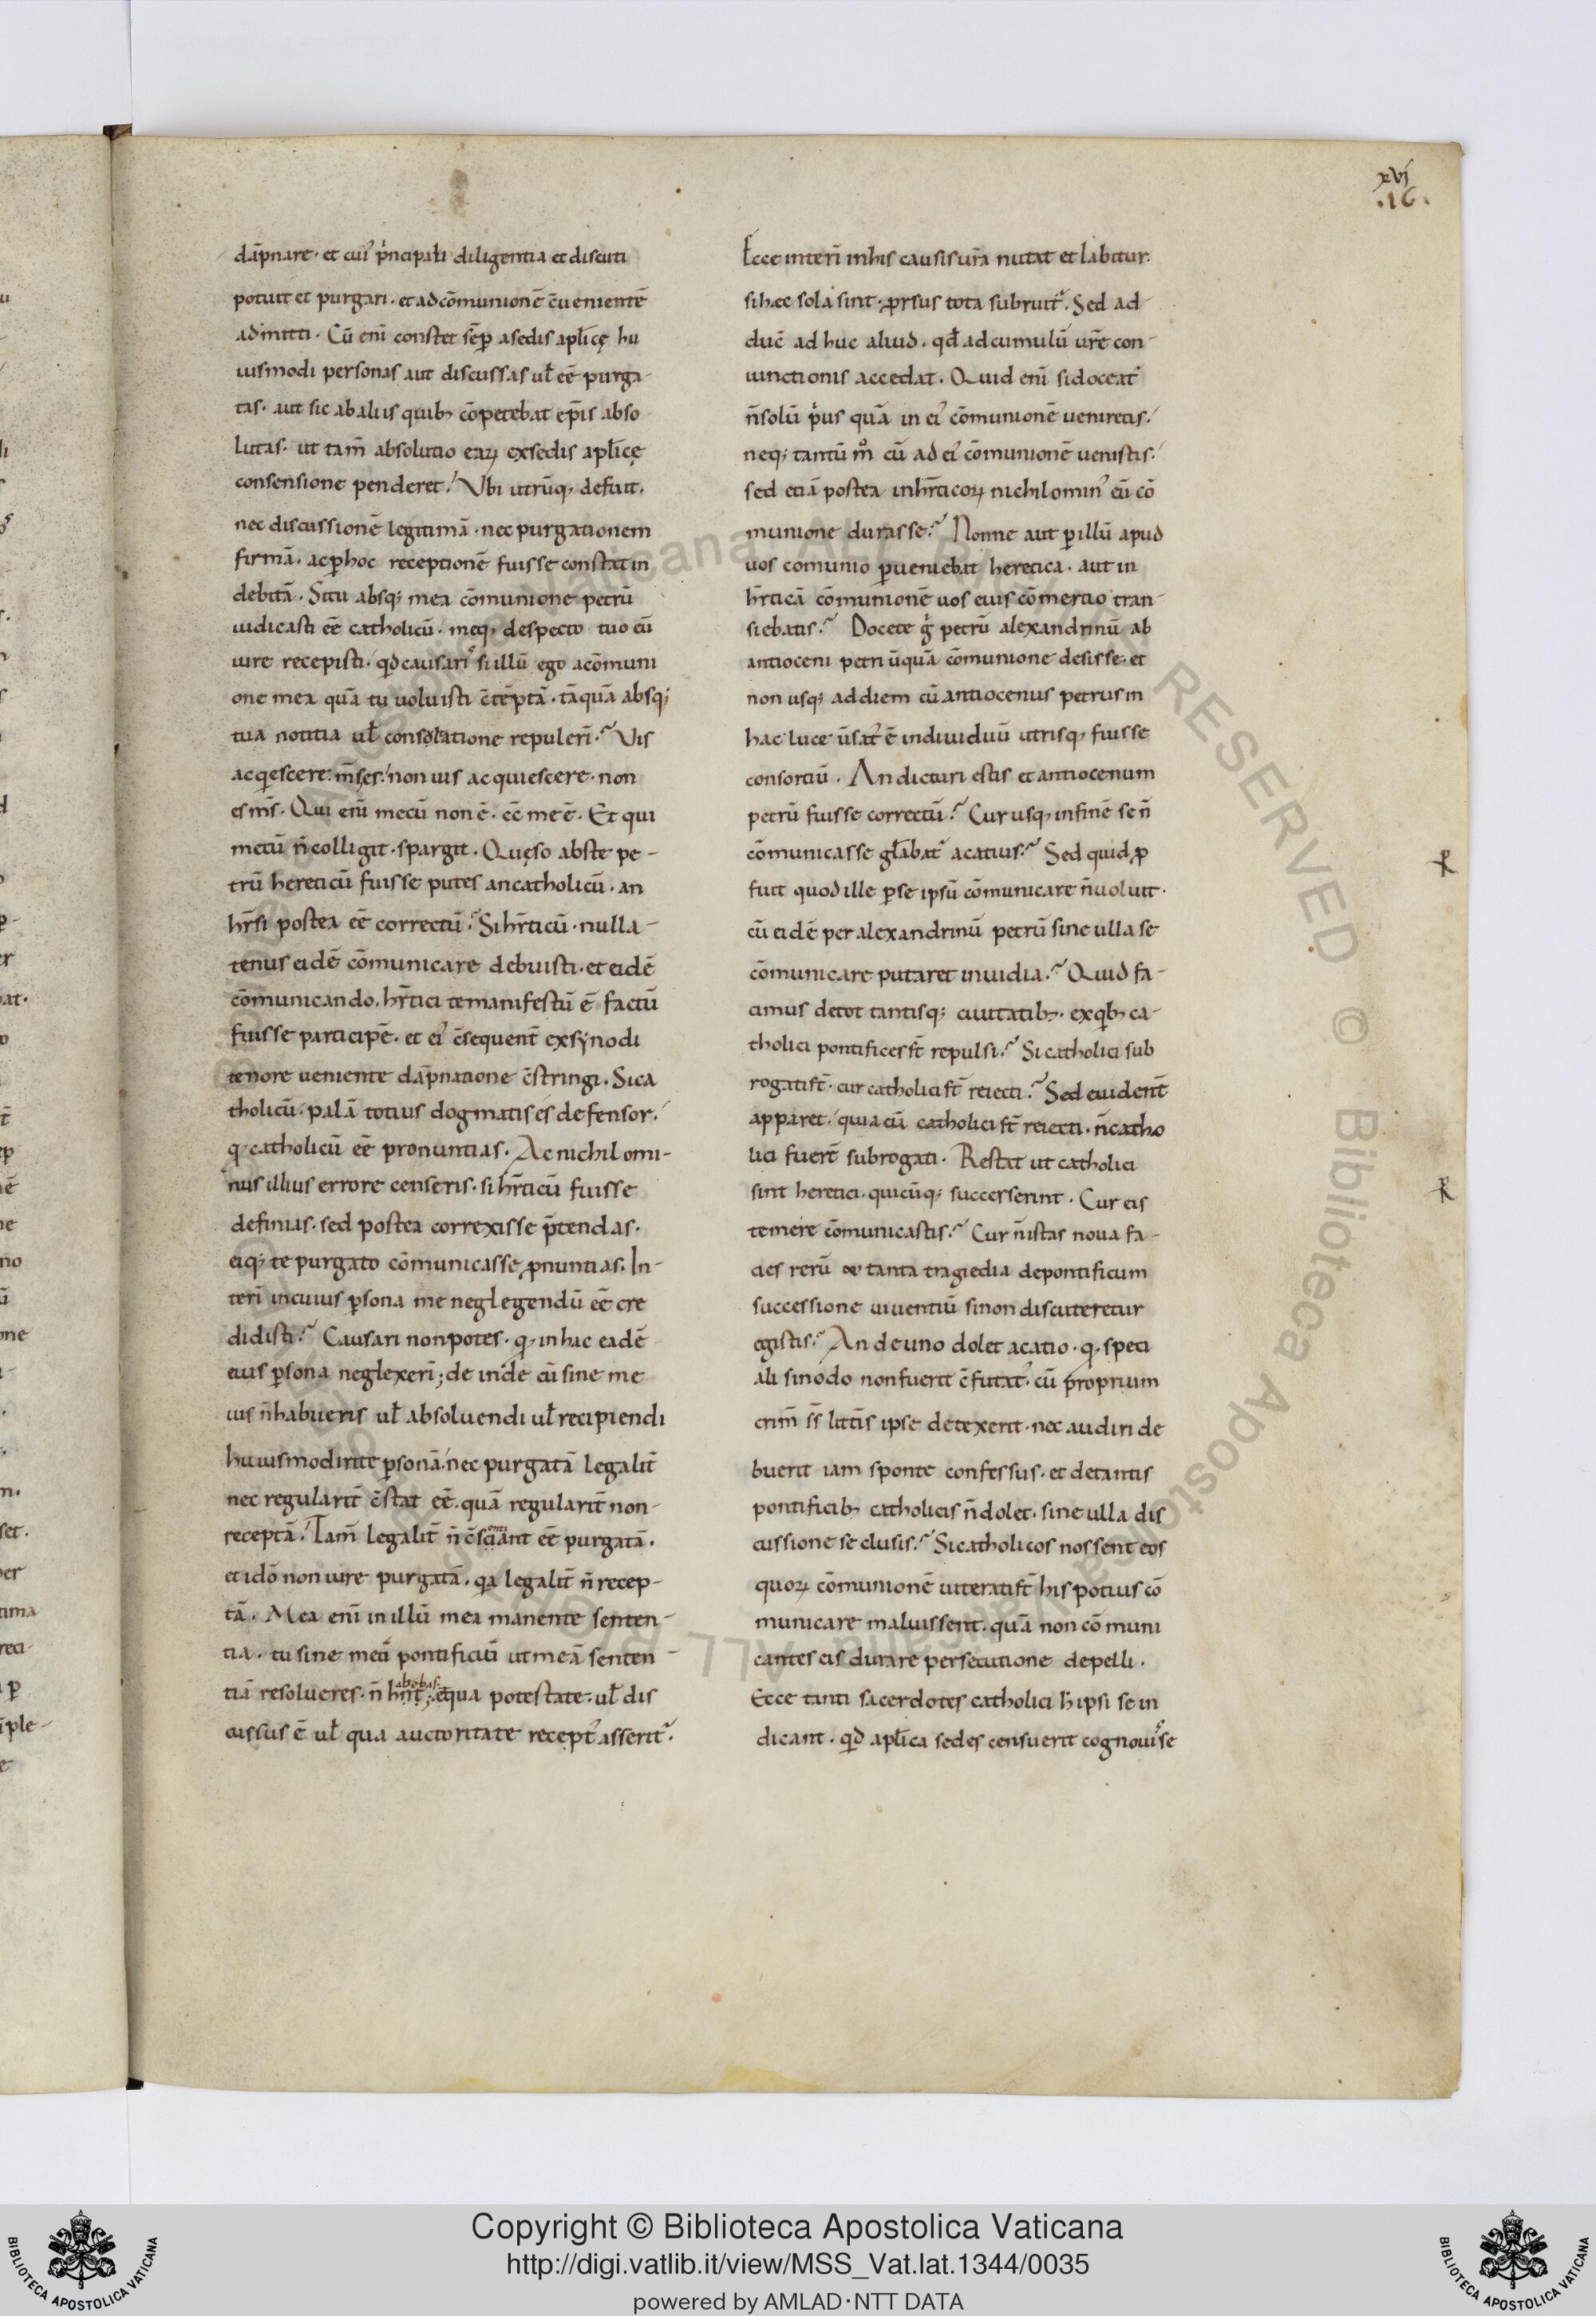 xvi
.16.
dāpnare· et cui᾽ p̓ncipali diligentia et discuti
potuit et purgari· et ad cōmunionē c̄uenientē
admitti· Cū eni̅ constet sēp a sedis apl̄icę hu
iusmodi personas aut discussas ul̄ eē purga-
tas· aut sic ab aliis quib; cōpetebat ep̄is abso
lutas· ut tam̄ absolutio eaꝝ ex sedis apl̄icę
consensione penderet! Vbi utrūq; defuit,
nec discussionē legitimā· nec purgationem
firmā· ac ꝑ hoc receptionē fuisse constat in
debitā. Si tu absq; mea cōmunione petrū
iudicasti eē catholicū· meq; despecto tuo eū
iure recepisti· qd̄ causaris᾽ si illū ego a cōmuni
one mea quā tu uoluisti c̄tēptā· tāquā absq;
tua notitia ul̄ consolatione repuleri̅? Vis
acq̓escere: m̄s es! non uis acquiescere· non
es m̄s. Qui eni̅ mecū non ē· c̄c me ē. Et qui
mecū n̄ colligit· spargit. Quęso abs te pe-
trū hereticū fuisse putes an catholicū· an
hr̄si postea eē correctū? Si hr̄ticū· nulla-
tenus eidē cōmunicare debuisti· et eidē
cōmunicando, hr̄tici te manifestū ē factū
fuisse participē· et ei᾽ c̄sequent̄ ex synodi
tenore ueniente dāpnatione c̄stringi. Si ca
tholicū· palā totius dogmatis es defensor!
q; catholicū eē pronuntias. Ac nichilomi-
nus illius errore censeris· si hr̄ticū fuisse
definias· sed postea correxisse p̄tendas·
eiq; te purgato cōmunicasse ꝓnuntias. In-
teri̅ in cuius ꝑsona me neglegendū eē cre
didisti? Causari non potes· q; in hac eadē
eius ꝑsona neglexeri̅; deinde cū sine me
ius n̄ habueris ul̄ absoluendi ul̄ recipiendi
huiusmodi rite ꝑsonā! nec purgatā legalit̄
nec regularit̄ c̄stat eē· quā regularit̄ non-
receptā! Tam̄ legalit̄ n̄ c̄stant eē purgatā·
et idō non iure purgatā· q̓a legalit̄ n̄ recep-
tā. Mea eni̅ in illū mea manente senten-
tia· tu sine meū pontificiū ut meā senten-
tiā resolueres· n̄ habebas· equa potestate· ul̄ dis
cussus ē ul̄ qua auctoritate recept᾽ asserit᾽.
Ecce interi̅ in his causis ur̄a nutat et labitur·
si hæc sola sint· ꝓrsus tota subruit᾽. Sed ad-
duc̄ ad huc aliud· qd̄ ad cumulū ur̄e con-
iunctionis accedat. Quid eni̅ si doceat᾽
n̄ solū p̓us quā in ei᾽ cōmunionē ueniretis!
neq; tantū mͦ cū ad ei᾽ cōmunionē uenistis!
sed etiā postea in hr̄ticoꝝ nichilomin᾽ eū cō
munione durasse? Nonne aut ꝑ illū apud
uos comunio ꝑueniebat heretica· aut in
hr̄ticā cōmunionē uos eius cōmertio tran-
siebatis? Docete g̓ petrū alexandrinū ab
antioceni petri ūquā cōmunione desisse· et
non usq; ad diem cū antiocenus petrus in
hac luce ūsat᾽ ē indiuiduū utrisq; fuisse
consortiū. An dicturi estis et antiocenum
petrū fuisse correctū? Cur usq; in finē se n̄
cōmunicasse gl̄abat᾽ acatius? Sed quid ꝓ
fuit quod ille ꝑ se ipsū cōmunicare n̄ uoluit·
cū eidē per alexandrinū petrū sine ulla se
cōmunicare putaret inuidia? Quid fa-
cimus de tot tantisq; ciuitatib;· ex q̓b; ca-
tholici pontifices st̄ repulsi? Si catholici sub
rogati st̄· cur catholici st̄ reiecti? Sed euident̄
apparet! quia cū catholici st̄ reiecti· n̄ catho
lici fuert̄ subrogati. Restat ut catholici
sint heretici· quicūq; successerint. Cur eis
temere cōmunicastis? Cur n̄ istas noua fa-
cies rerū & tanta tragiedia de pontificum
successione uiuentiū si non discuteretur
egistis? An de uno dolet acatio· q; speci
ali sinodo non fuerit c̄futat᾽· cū proprium
crim̄ ss̄ litt̄is ipse detexerit· nec audiri de
buerit iam sponte confessus· et de tantis
pontificib; catholicis n̄ dolet· sine ulla dis
cussione seclusis? Si catholicos nossent eos
quoꝝ cōmunionē uiterati st̄ his potius cō
municare maluissent· quā non cōmuni
cantes eis durare persecutione depelli.
Ecce tanti sacerdotes catholici h̄ ipsi se in
dicant· qd̄ apl̄ica sedes censuerit cognouis᾽se
Copyright © Biblioteca Apostolica Vaticana
http://digi.vatlib.it/view/MSS_Vat.lat.1344/0035
powered by AMLAD·NTT DATA
BIBLIOTECA APOSTOLICA VATICANA
BIBLIOTECA APOSTOLICA VATICANA